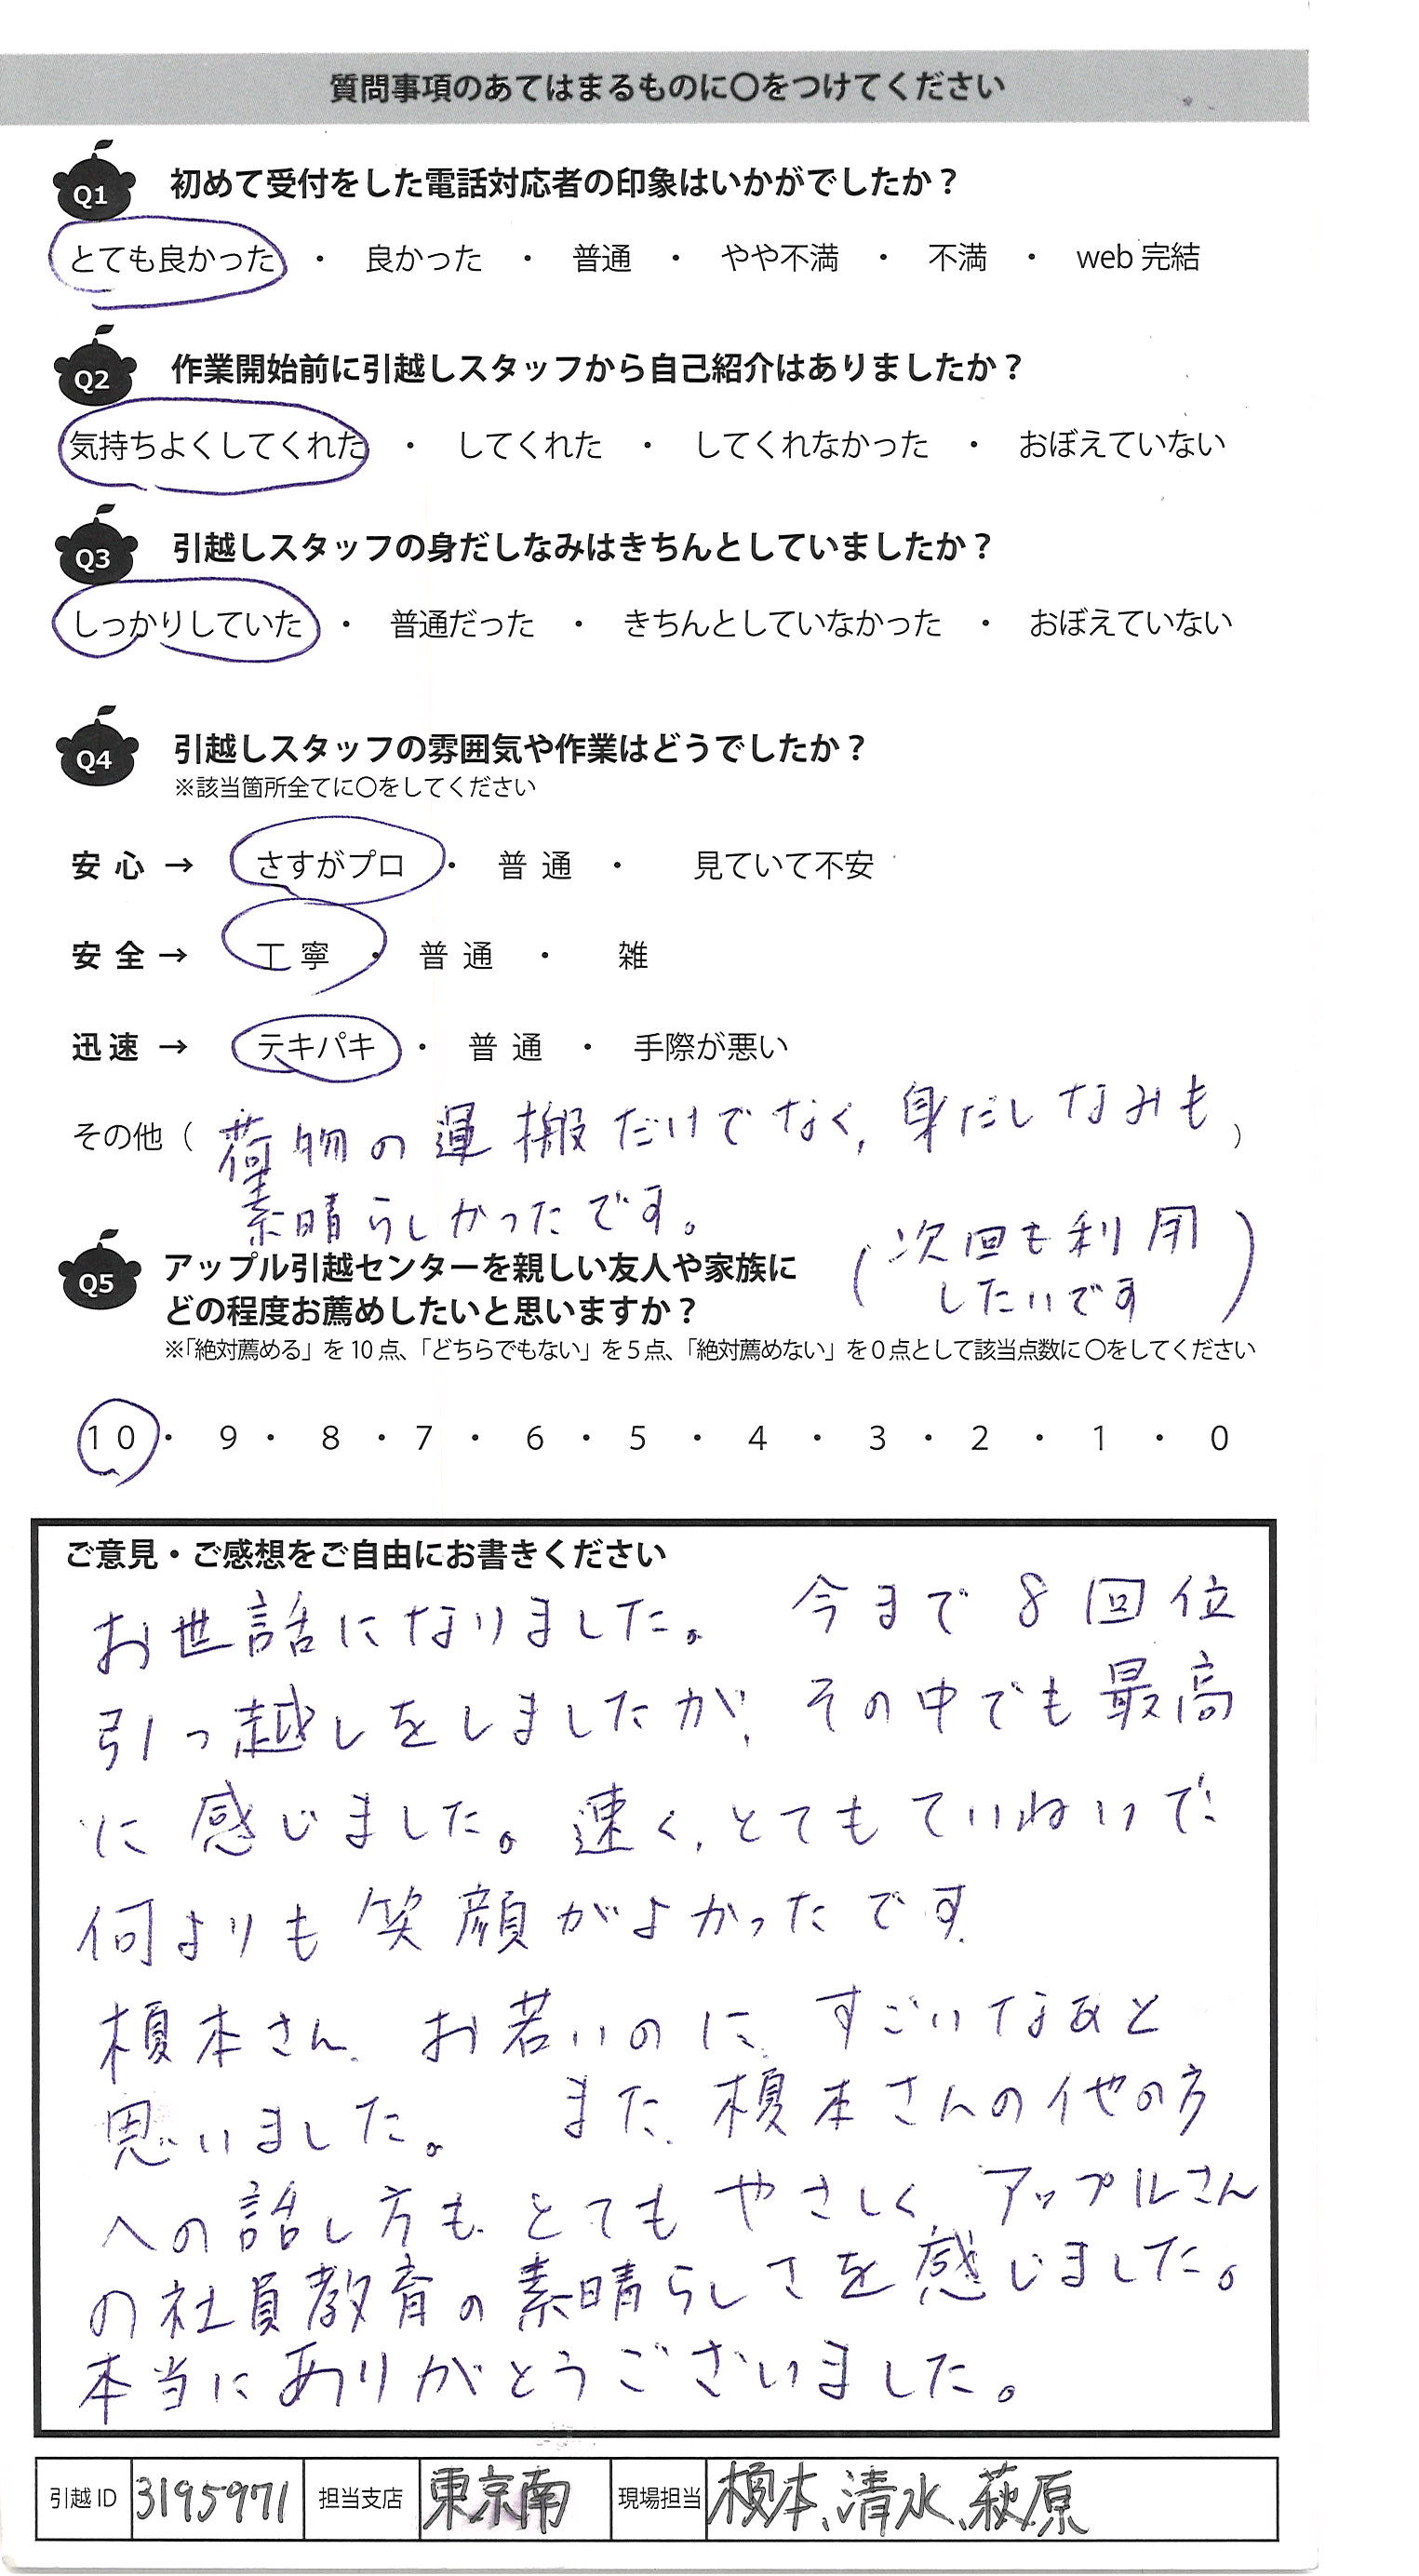 質問事項のあてはまるものに〇をつけてください
Q1 初めて受付をした電話対応者の印象はいかがでしたか？
とても良かった ・ 良かった ・ 普通 ・ やや不満 ・ 不満 ・ web 完結
Q2 作業開始前に引越しスタッフから自己紹介はありましたか？
気持ちよくしてくれた ・ してくれた ・ してくれなかった ・ おぼえていない
Q3 引越しスタッフの身だしなみはきちんとしていましたか？
しっかりしていた ・ 普通だった ・ きちんとしていなかった ・ おぼえていない
Q4 引越しスタッフの雰囲気や作業はどうでしたか？
※該当箇所全てに〇をしてください
安心 → さすがプロ ・ 普通 ・ 見ていて不安
安全 → 丁寧 ・ 普通 ・ 雑
迅速 → テキパキ ・ 普通 ・ 手際が悪い
その他（ 荷物の運搬だけでなく, 身だしなみも ）
素晴らしかったです。
Q5 アップル引越センターを親しい友人や家族に
どの程度お薦めしたいと思いますか？
（次回も利用
したいです）
※「絶対薦める」を10点、「どちらでもない」を5点、「絶対薦めない」を0点として該当点数に〇をしてください
10 ・ 9 ・ 8 ・ 7 ・ 6 ・ 5 ・ 4 ・ 3 ・ 2 ・ 1 ・ 0
ご意見・ご感想をご自由にお書きください
お世話になりました。 今まで8回位
引っ越しをしましたが、その中でも最高
に感じました。速く、とてもていねいで
何よりも笑顔がよかったです.
榎本さん、お若いのに、すごいなあと
思いました。 また、榎本さんの他の方
への話し方も、とてもやさしく、アップルさん
の社員教育の素晴らしさを感じました。
本当にありがとうございました。
引越ID 3195971 担当支店 東京南 現場担当 榎本、清水、萩原